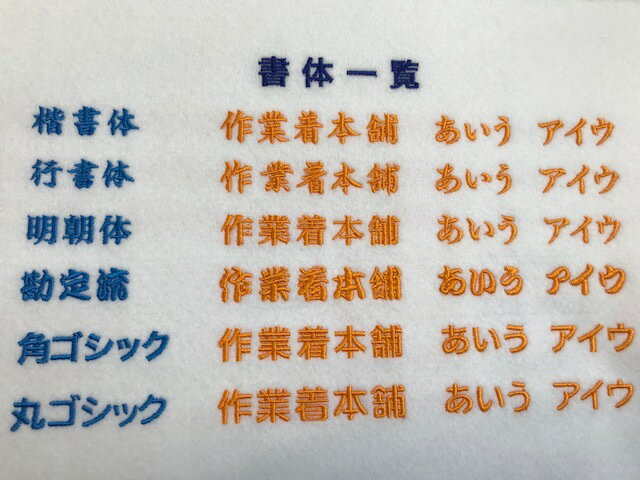 書体一覧
楷書体 作業着本舗 あいう アイウ
行書体 作業着本舗 あいう アイウ
明朝体 作業着本舗 あいう アイウ
勘定流 作業着本舗 あいう アイウ
角ゴシック 作業着本舗 あいう アイウ
丸ゴシック 作業着本舗 あいう アイウ